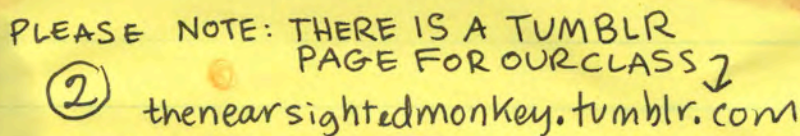 PLEASE NOTE: THERE IS A TUMBLR
PAGE FOR OUR CLASS
② thenearsightedmonkey.tumblr.com